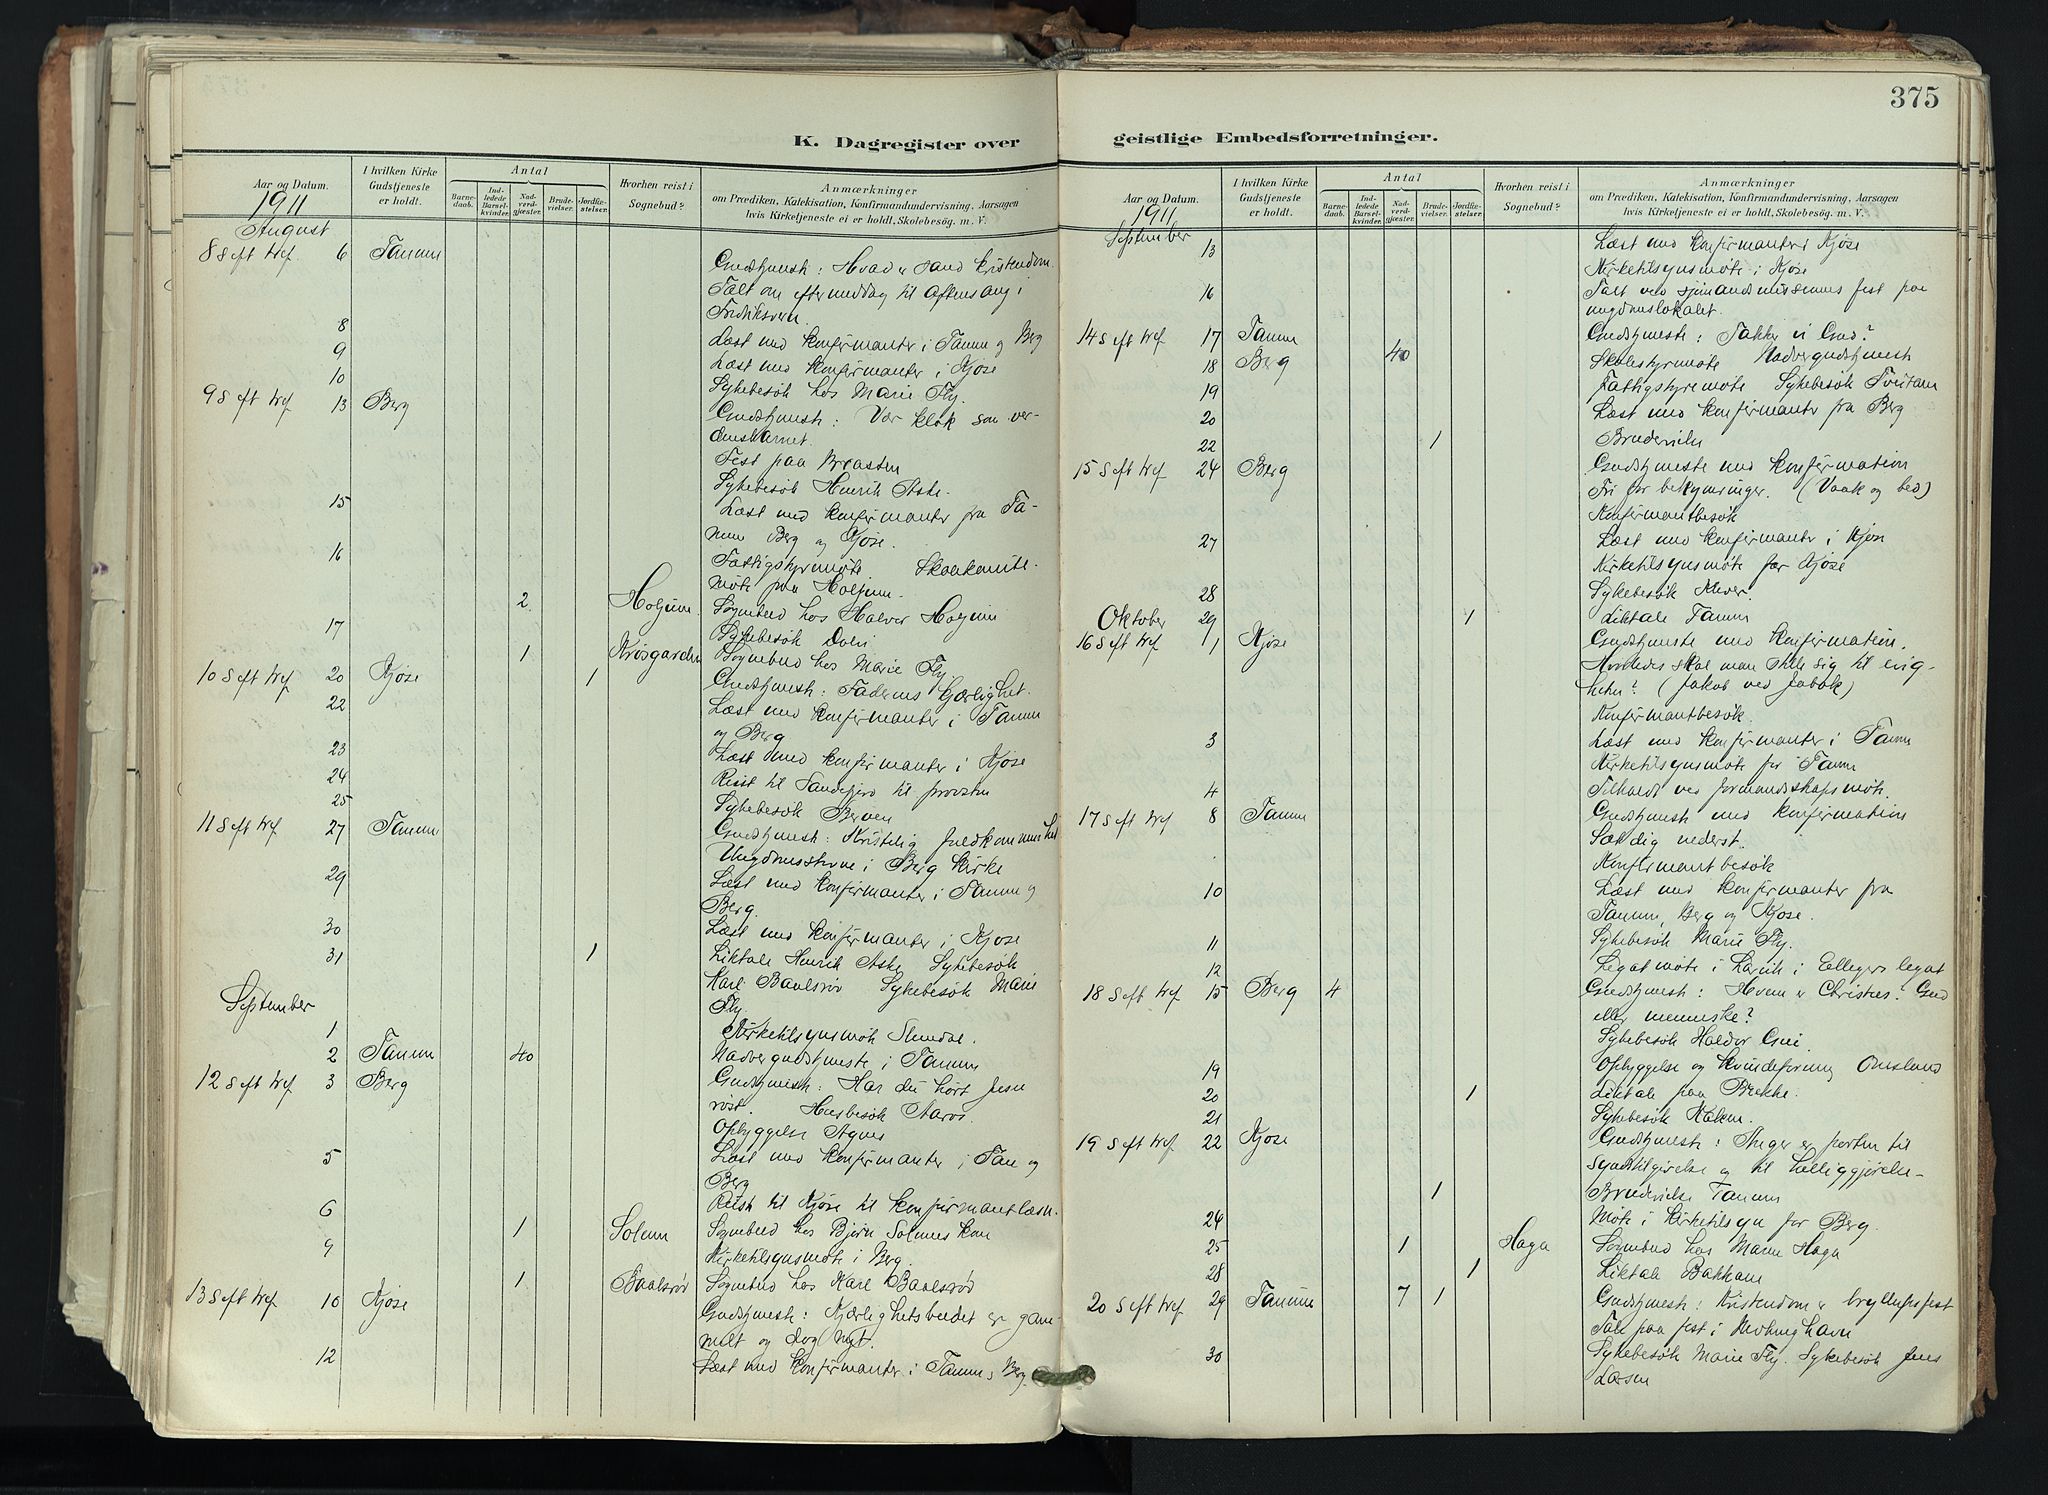 375
K. Dagregister over geistlige Embedsforretninger.
Aar og Datum.
1911
I hvilken Kirke Gudstjeneste er holdt.
Antal
Barnedaab.
Indledede Barselkvinder.
Nadverdgjæster.
Brudevielser.
Jordfæstelser.
Hvorhen reist i Sognebud?
Anmærkninger
om Prædiken, Katekisation, Konfirmandundervisning, Aarsagen
hvis Kirketjeneste ei er holdt, Skolebesøg. m. V.
August
8 S eft tref. 6 Tanum Gudstjenest: Hvad er sand kristendom.
Talt om eftermeddag til aftensang i
Fredriksvern.
8 Læst med konfirmanter i Tanum og Berg
9 Læst med konfirmanter i Kjose
10 Sykebesøk hos Marie Fly.
9 S eft tref 13 Berg Gudstjenest: Vær klok som ver-
densbarnet.
Fest paa
Sykebesøk Henrik Aske.
15 Læst med konfirmanter fra Ta-
num Berg og Kjose.
16 Fattigstyremøte
møte paa Holjum.
2 Holjum Sognebud hos Halvor Holjum
17 Sykebesøk
1 Krosgarden Sognebud hos Marie Fly
10 S eft tref 20 Kjose 1 Gudstjenest: Faderens kjærlighet.
22 Læst med konfirmanter i Tanum
og Berg
23 Læst med konfirmanter i Kjose
24 Reist til Sandefjord til provsten
25 Sykebesøk Berven
11 S eft tref 27 Tanum Gudstjenest: Kristelig fuldkommenhet
Ungdomsstevne i Berg kirke
29 Læst med konfirmanter i Tanum og
Berg.
30 Læst med konfirmanter i Kjose
31 1 Liktale Henrik Aske Sykebesøk
Karl Baulsrød Sykebesøk Marie
Fly.
September
1 Kirketilsynsmøte
2 Tanum 40 Nadvergudstjeneste i Tanum
12 S eft tref. 3 Berg Gudstjenest: Har du hørt Jesu
røst. Husbesøk Aaros.
Opbyggelse Agnes
5 Læst med konfirmanter i Tan og
Berg
6 Reist til Kjose til konfirmantlæsn.
1 Solum Sognebud hos Bjørn Solums kone
9 Kirketilsynsmøte i Berg.
1 Baalsrød Sognebud hos Karl Baalsrød
13 S eft tref 10 Kjose Gudstjenest: Kjærlighetsbudet er gam-
melt og dog nyt.
12 Læst med konfirmanter i Tanum, Berg.
Aar og Datum.
1911
I hvilken Kirke Gudstjeneste er holdt.
Antal
Barnedaab.
Indledede Barselkvinder.
Nadverdgjæster.
Brudevielser.
Jordfæstelser.
Hvorhen reist i Sognebud?
Anmærkninger
om Prædiken, Katekisation, Konfirmandundervisning, Aarsagen
hvis Kirketjeneste ei er holdt, Skolebesøg. m. V.
September
13 Læst med konfirmanter i Kjose
Kirketilsynsmøte i Kjose
16 Talt ved sjømandsmissionens fest paa
ungdomslokalet.
14 S eft tref 17 Tanum Gudstjeneste: Takker vi Gud?
18 Berg 40 Skolestyremøte Nadvergudstjenest
19 Fattigstyremøte Sykebesøk
20 Læst med konfirmanter fra Berg
22 1 Brudevielse
15 S eft tref 24 Berg Gudstjeneste med konfirmation
Fri for bekymringer. (Vaak og bed)
Konfirmantbesøk
27 Læst med konfirmanter i Kjose
Kirketilsynsmøte for Kjose
28 Sykebesøk
Oktober 29 1 Liktale Tanum
16 S eft tref 1 Kjose Gudstjeneste med konfirmation.
Hvorledes skal man stille sig til evig-
heten? (Jakob ved Jabok)
Konfirmantbesøk.
3 Læst med konfirmanter i Tanum
Kirketilsynsmøte for Tanum
4 Tilstede ved formandsskapsmøte.
17 S eft tref 8 Tanum Gudstjenest med konfirmation
Sæt dig nederst.
Konfirmantbesøk
10 Læst med konfirmanter fra
Tanum, Berg og Kjose.
11 Sykebesøk Marie Fly.
12 Legatmøte i Larvik i legat
18 S eft tref 15 Berg 4 Gudstjenest: Hvem er Christus? Gud
eller menneske?
Sykebesøk Haldor
19 Opbyggelse og kvindeforening Omsland
20 1 Liktale paa Brekke.
21 Sykebesøk
19 S eft tref 22 Kjose Gudstjenest: Anger er porten til
syndstilgivelse og til helliggjørelse
1 Brudevielse Tanum
24 Møte i kirketilsyn for Berg.
25 1 Haga Sognebud hos Maren Haga
28 1 Liktale Bakkane
20 S eft tref 29 Tanum 7 1 Gudstjenest: Kristendom er bryllupsfest
Tale paa fest i Nevlunghavn
30 Sykebesøk Marie Fly. Sykebesøk Jens
Larsen